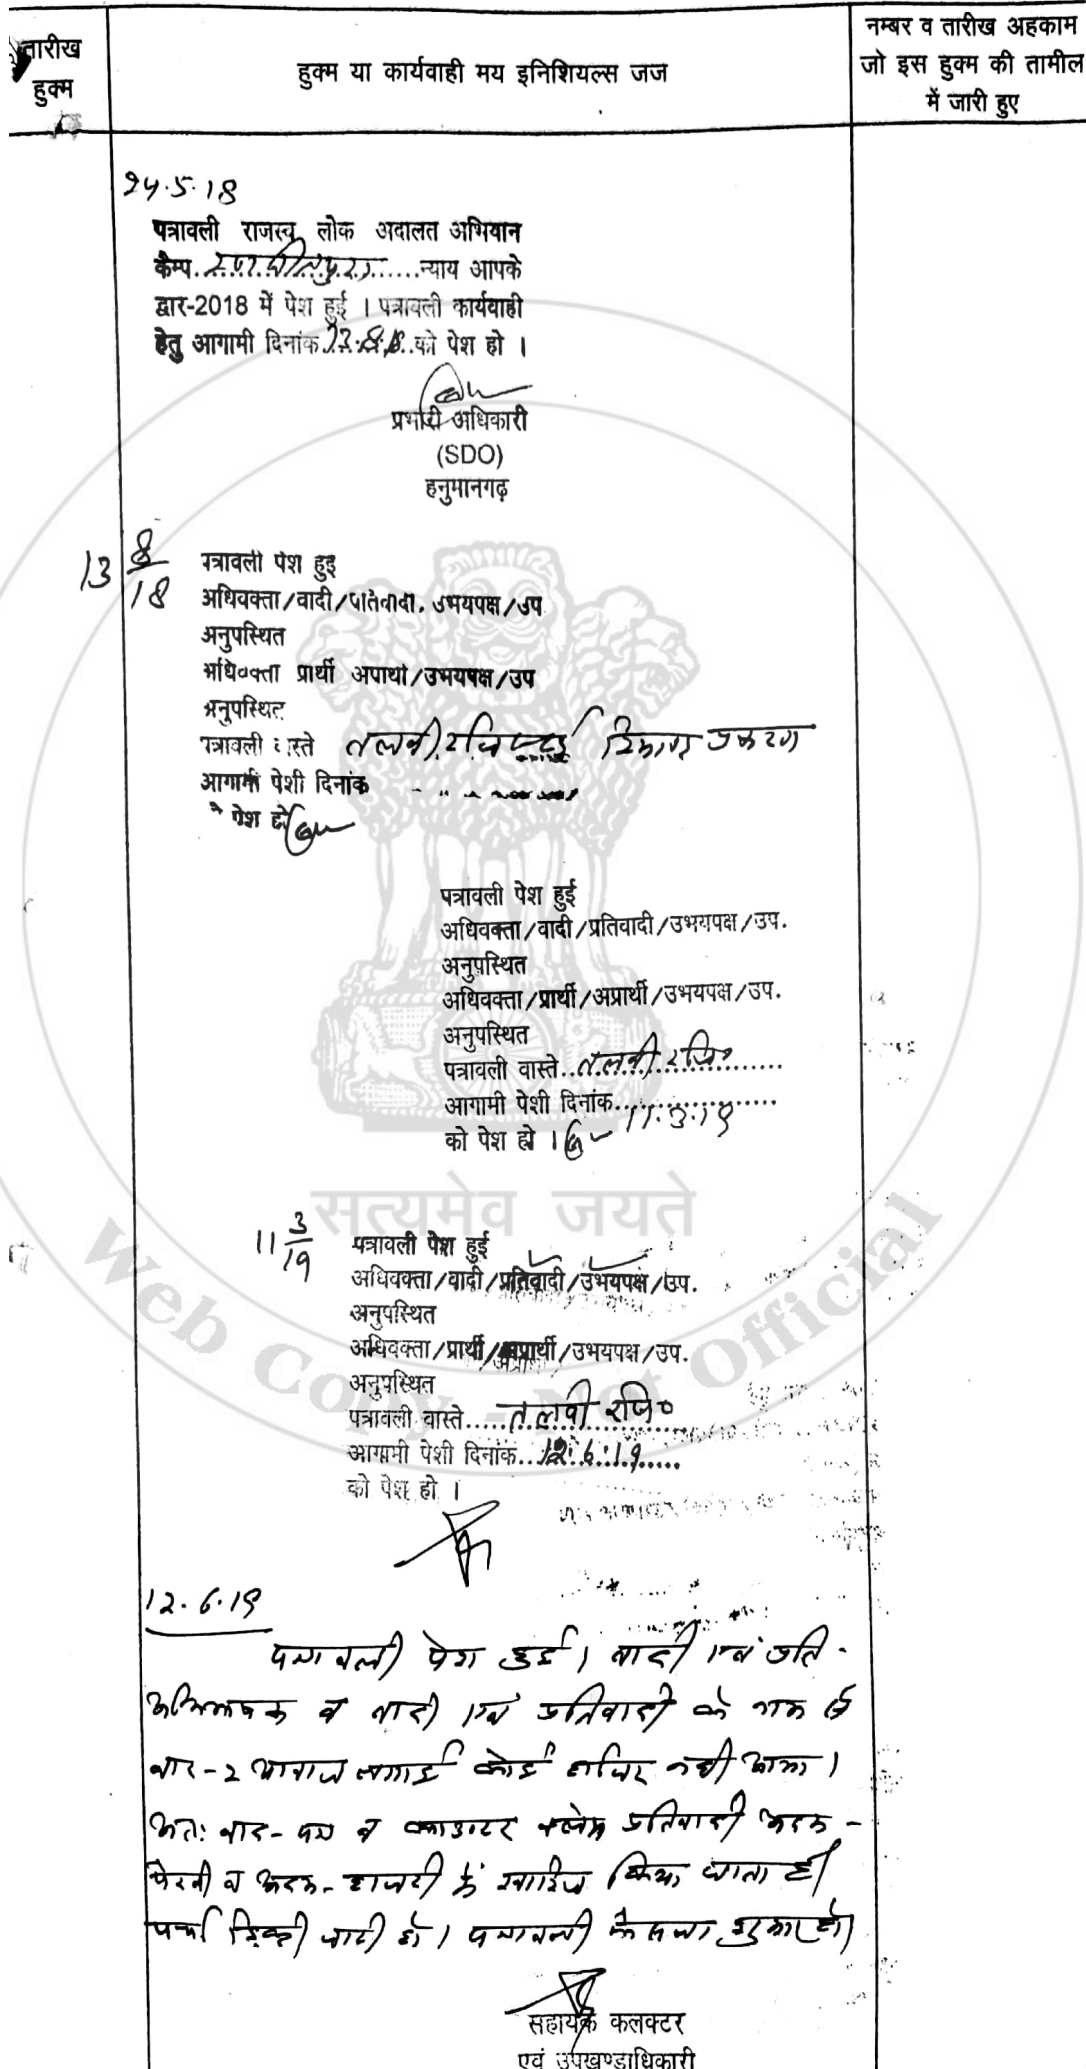 तारीख
हुक्म
हुक्म या कार्यवाही मय इनिशियल्स जज
नम्बर व तारीख अहकाम
जो इस हुक्म की तामील
में जारी हुए
24.5.18
पत्रावली राजस्व लोक अदालत अभियान
कैम्प.............न्याय आपके
द्वार-2018 में पेश हुई । पत्रावली कार्यवाही
हेतु आगामी दिनांक 13.8.18 को पेश हो ।
प्रभारी अधिकारी
(SDO)
हनुमानगढ़
13 8/18
पत्रावली पेश हुई
अधिवक्ता/वादी/प्रतिवादी. उभयपक्ष/उप
अनुपस्थित
अधिवक्ता प्रार्थी अप्रार्थी/उभयपक्ष/उप
अनुपस्थित
पत्रावली वास्ते तलबी
आगामी पेशी दिनांक
पेश हो
पत्रावली पेश हुई
अधिवक्ता/वादी/प्रतिवादी/उभयपक्ष/उप.
अनुपस्थित
अधिवक्ता/प्रार्थी/अप्रार्थी/उभयपक्ष/उप.
अनुपस्थित
पत्रावली वास्ते..तलबी रजि०..........
आगामी पेशी दिनांक..11.3.19
को पेश हो ।
11 3/19
पत्रावली पेश हुई
अधिवक्ता/वादी/प्रतिवादी/उभयपक्ष/उप.
अनुपस्थित
अधिवक्ता/प्रार्थी/अप्रार्थी/उभयपक्ष/उप.
अनुपस्थित
पत्रावली वास्ते.....तलबी रजि०
आगामी पेशी दिनांक...12.6.19......
को पेश हो ।
12.6.19
पत्रावली पेश हुई। वादी एवं प्रति-
व वादी एवं प्रतिवादी के नाम से
बार-2 आवाज लगाई कोई हाजिर नहीं आया।
अतः वाद-पत्र व काउण्टर क्लेम प्रतिवादी अदम-
पैरवी व अदम-हाजरी में खारिज किया जाता है।
पर्चा डिक्री जारी हो। पत्रावली फैसला शुमार हो।
सहायक कलक्टर
एवं उपखण्डाधिकारी
सत्यमेव जयते
Web Copy - Not Official